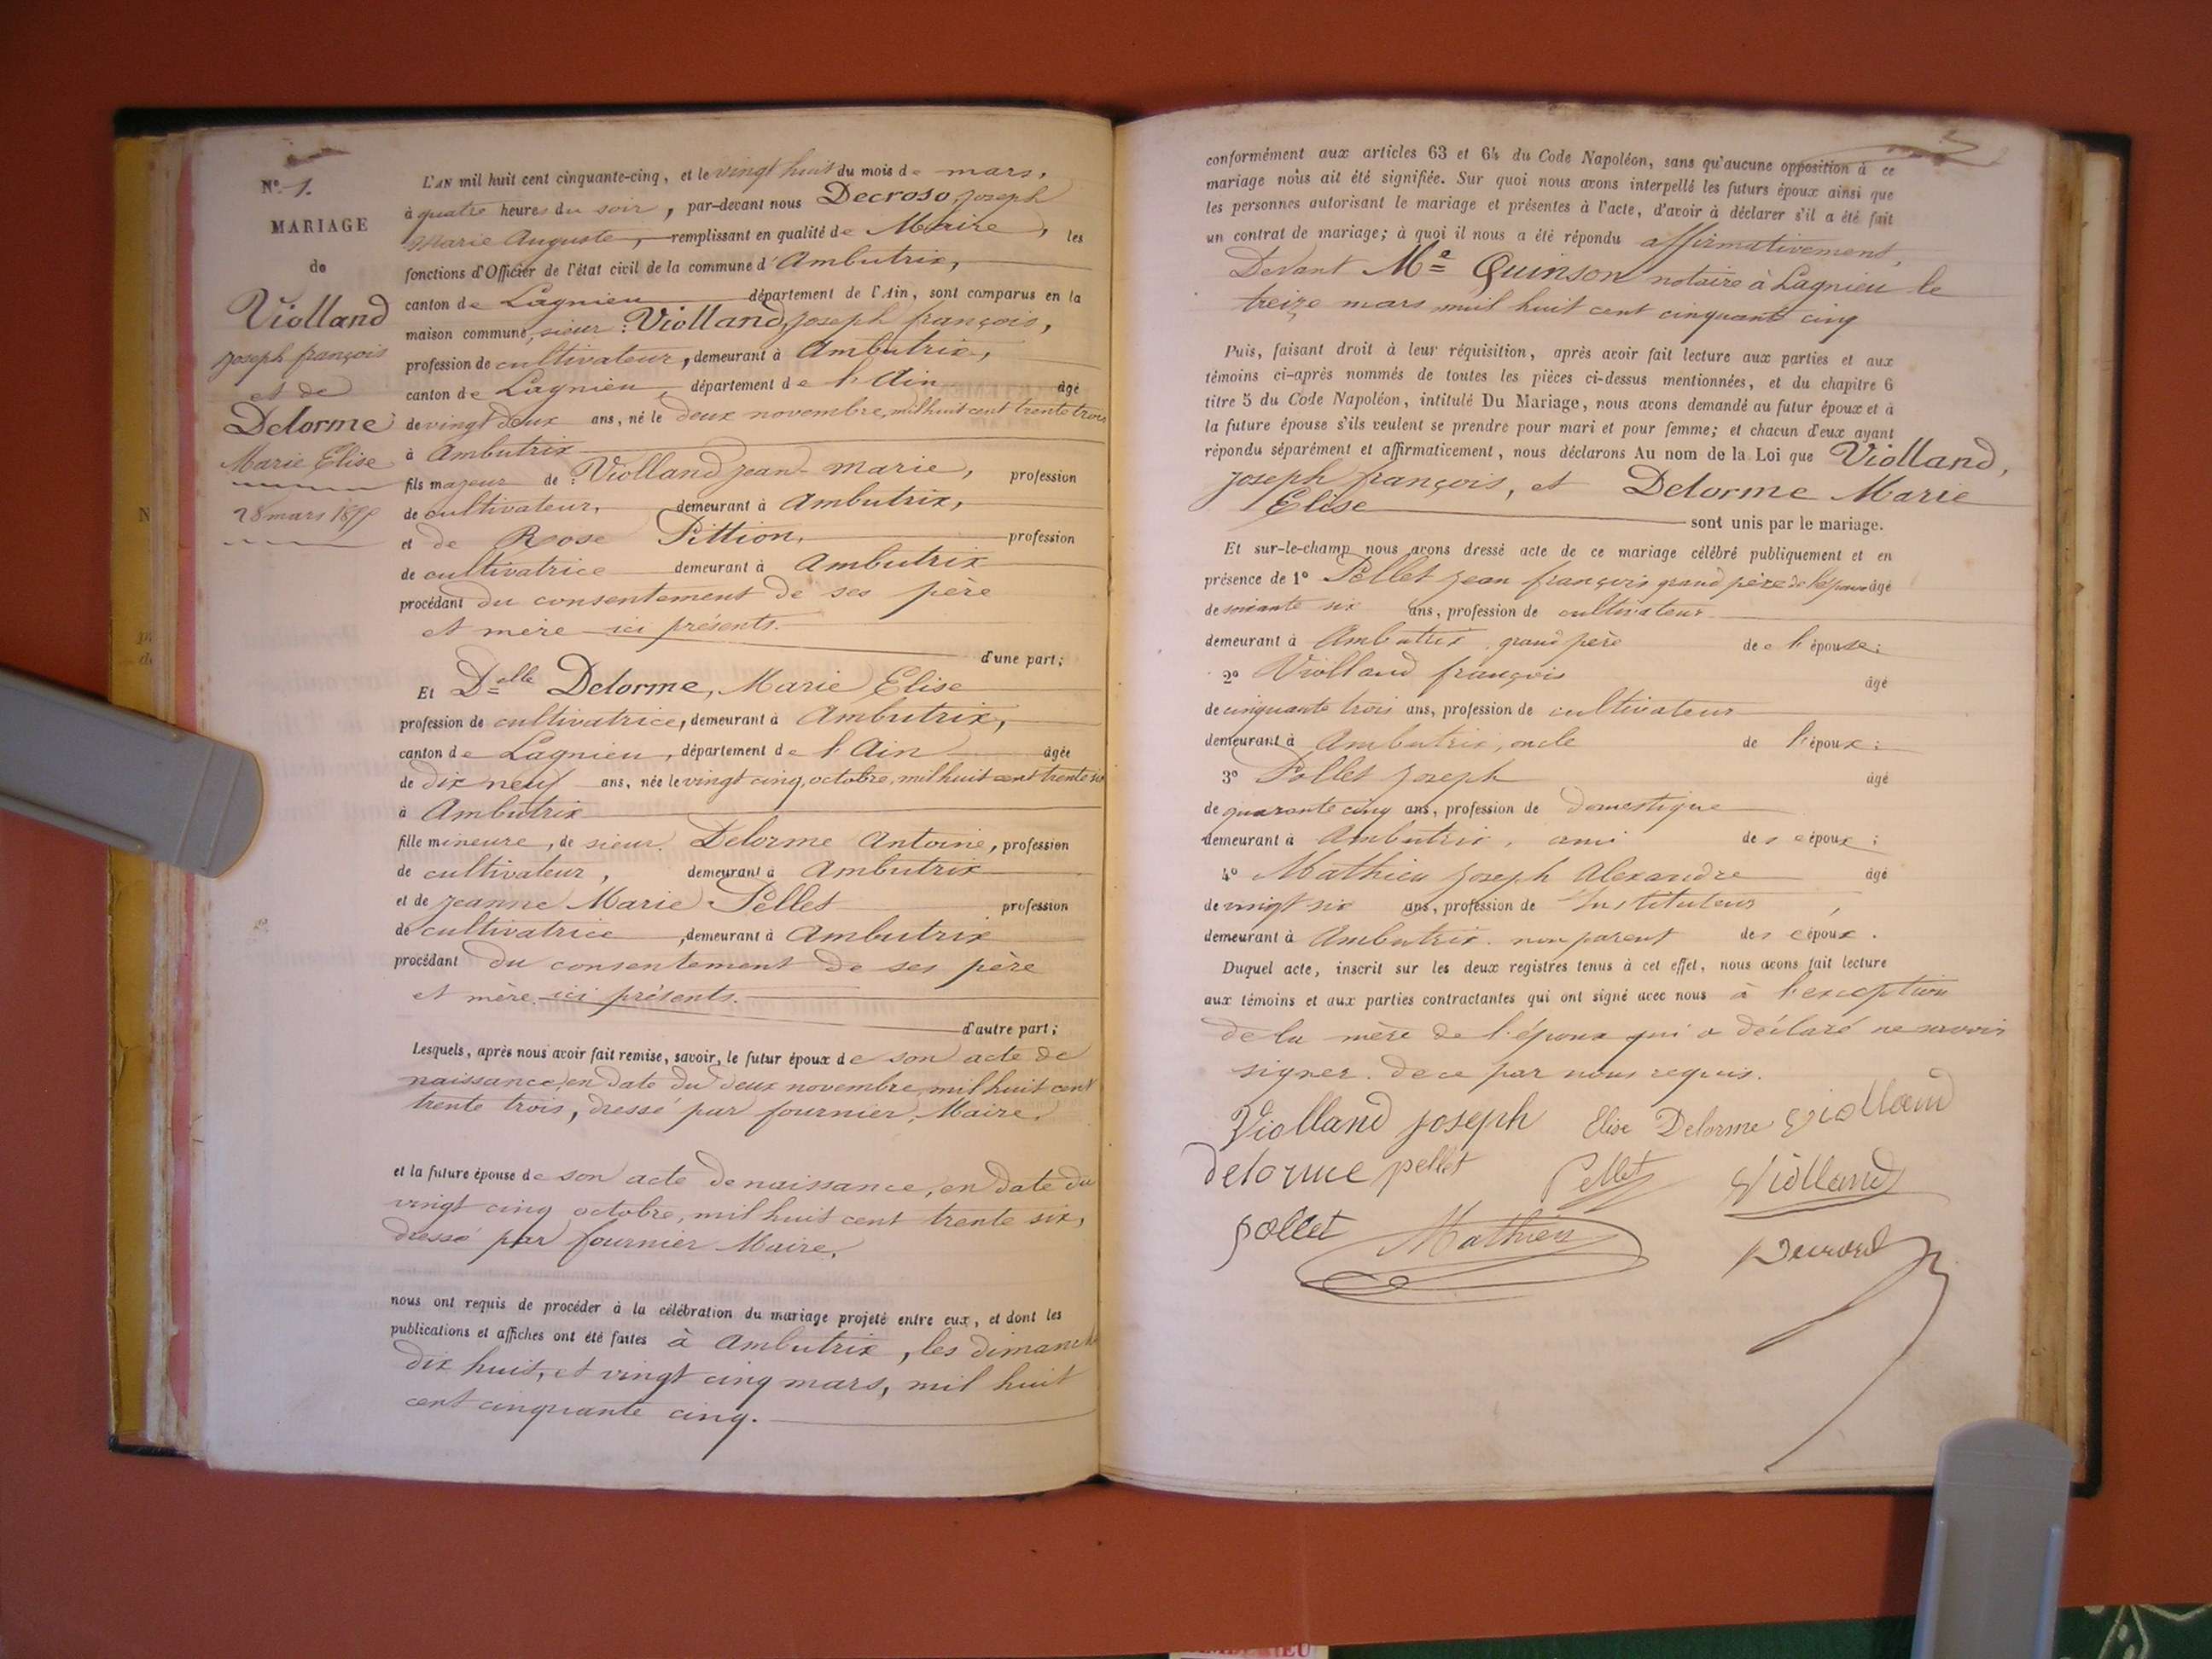 N° 1.
MARIAGE
de
Violland
Joseph françois
et de
Delorme
Marie Elise
28 mars 1855
L'AN mil huit cent cinquante-cinq, et le vingt huit du mois de mars,
à quatre heures du soir, par-devant nous Decroso, Joseph
Marie Auguste, remplissant en qualité de Maire, les
fonctions d'Officier de l'état civil de la commune d'Ambutrix,
canton de Lagnieu département de l'Ain, sont comparus en la
maison commune, sieur : Violland, Joseph françois,
profession de cultivateur, demeurant à Ambutrix,
canton de Lagnieu, département de l'Ain âgé
de vingt deux ans, né le deux novembre, mil huit cent trente trois
à Ambutrix
fils majeur de : Violland Jean-Marie, profession
de cultivateur, demeurant à Ambutrix,
et de Rose Pittion, profession
de cultivatrice demeurant à Ambutrix
procédant du consentement de ses père
et mère ici présents.
d'une part ;
Et Delle Delorme, Marie Elise
profession de cultivatrice, demeurant à Ambutrix,
canton de Lagnieu, département de l'Ain âgée
de dix neuf ans, née le vingt cinq, octobre, mil huit cent trente six
à Ambutrix
fille mineure, de sieur. Delorme Antoine, profession
de cultivateur, demeurant à Ambutrix
et de Jeanne Marie Pellet profession
de cultivatrice, demeurant à Ambutrix
procédant du consentement de ses père
et mère ici présents.
d'autre part ;
Lesquels, après nous avoir fait remise, savoir, le futur époux de son acte de
naissance, en date du deux novembre, mil huit cent
trente trois, dressé par fournier, Maire.
et la future épouse de son acte de naissance, en date du
vingt cinq octobre, mil huit cent trente six,
dressé par fournier Maire.
nous ont requis de procéder à la célébration du mariage projeté entre eux, et dont les
publications et affiches ont été faites à Ambutrix, les dimanches
dix huit, et vingt cinq mars, mil huit
cent cinquante cinq.
conformément aux articles 63 et 64 du Code Napoléon, sans qu'aucune opposition à ce
mariage nous ait été signifiée. Sur quoi nous avons interpellé les futurs époux ainsi que
les personnes autorisant le mariage et présentes à l'acte, d'avoir à déclarer s'il a été fait
un contrat de mariage ; à quoi il nous a été répondu affirmativement,
Devant Me Quinson notaire à Lagnieu le
treize mars mil huit cent cinquante cinq
Puis, faisant droit à leur réquisition, après avoir fait lecture aux parties et aux
témoins ci-après nommés de toutes les pièces ci-dessus mentionnées, et du chapitre 6
titre 5 du Code Napoléon, intitulé Du Mariage, nous avons demandé au futur époux et à
la future épouse s'ils veulent se prendre pour mari et pour femme ; et chacun d'eux ayant
répondu séparément et affirmativement, nous déclarons Au nom de la Loi que Violland,
Joseph françois, et Delorme Marie
Elise sont unis par le mariage.
Et sur-le-champ nous avons dressé acte de ce mariage célébré publiquement et en
présence de 1° Pellet Jean françois grand père de l'épouse âgé
de soixante six ans, profession de cultivateur
demeurant à Ambutrix, grand père de l'épouse ;
2° Violland françois âgé
de cinquante trois ans, profession de cultivateur
demeurant à Ambutrix, oncle de l'époux ;
3° Pollet Joseph âgé
de quarante cinq ans, profession de domestique
demeurant à Ambutrix, ami des époux ;
4° Mathieu Joseph Alexandre âgé
de vingt six ans, profession de Instituteur,
demeurant à Ambutrix. non parent des époux.
Duquel acte, inscrit sur les deux registres tenus à cet effet, nous avons fait lecture
aux témoins et aux parties contractantes qui ont signé avec nous à l'exception
de la mère de l'époux qui a déclaré ne savoir
signer. de ce par nous requis.
Violland Joseph Elise Delorme Violland
delorme pellet Pellet Violland
pollet Mathieu